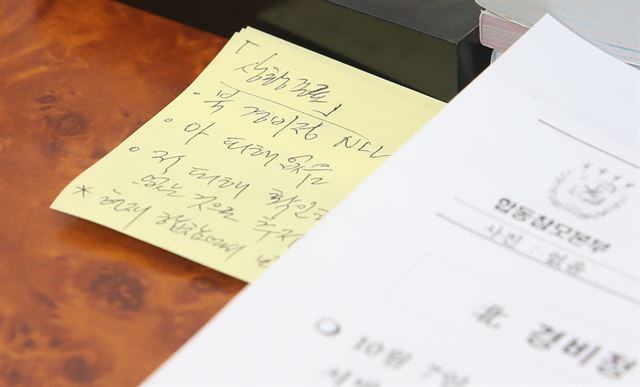 「상황종료」
• 북 경비정 NLL
• 아 피해 없음
• 적 피해 확인
없는 것으로 추정
* 현재
합동참모본부
사진 : 없음
北 경비정
○ 10월 7일